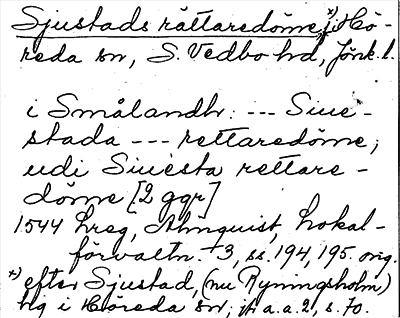 Sjustads rättaredöme,*) i Hö-
reda sn, S. Vedbo hd, Jönk. l.
i Smålandh: --- Siue-
stada --- rettaredöme;
udi Siuesta rettare-
döme [2 ggr]
1544 hreg, Almquist, Lokal-
förvaltn. 3, ss. 194, 195. orig.
*) efter Sjustad, (nu Ryningsholm)
hg i Höreda sn; a.a. 2, s. 70.